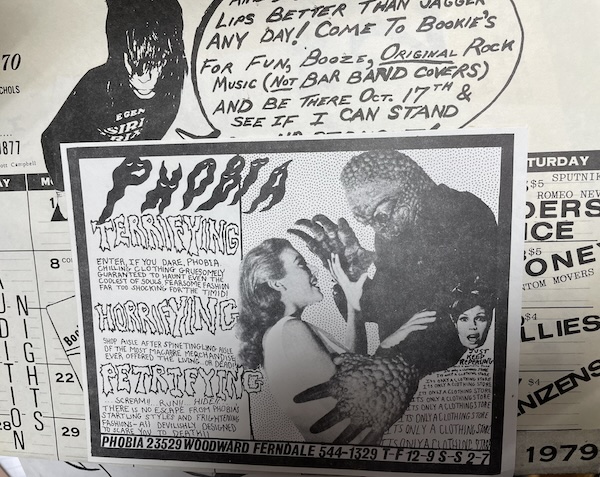 LIPS BETTER THAN JAGGER
ANY DAY! COME TO BOOKIE'S
FOR FUN, BOOZE, ORIGINAL ROCK
MUSIC (NOT BAR BAND COVERS)
AND BE THERE OCT. 17TH &
SEE IF I CAN STAND
70
CHOLS
1877
Campbell
PHOBIA
TERRIFYING
ENTER, IF YOU DARE, PHOBIA.
CHILLING CLOTHING GRUESOMELY
GUARANTEED TO HAUNT EVEN THE
COOLEST OF SOULS FEARSOME FASHION
FAR TOO SHOCKING FOR THE TIMID!
HORRIFYING
SHOP AISLE AFTER SPINETINGLING AISLE
OF THE MOST MACABRE MERCHANDISE
EVER OFFERED THE LIVING OR DEAD!
PETRIFYING
SCREAM!! RUN!! HIDE!!
THERE IS NO ESCAPE FROM PHOBIA'S
STARTLING STYLES AND FRIGHTENING
FASHIONS-ALL DEVILISHLY DESIGNED
TO SCARE YOU TO DEATH!!
JUST
KEEP
REPEATING
ITS ONLY A CLOTHING STORE
ITS ONLY A CLOTHING STORE
ITS ONLY A CLOTHING STORE
ITS ONLY A CLOTHING STORE
ITS ONLY A CLOTHING STORE
ITS ONLY A CLOTHING STORE
PHOBIA 23529 WOODWARD FERNDALE 544-1329 T-F 12-9 S-S 2-7
AY
M
1
8
22
28
29
TURDAY
$5 SPUTNIK
ROMEO NEV
DERS
ICE
$5
ONE
TOM MOVERS
$4
LLIES
$4
NIZENS
1979